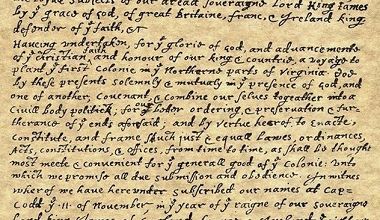 loyall subjects of our dread soveraigne Lord King James
by yͤ grace of God, of great Britaine, franc, & Ireland king
defender of yͤ faith, &c
Haveing undertaken, for yͤ glorie of god, and advancemente
of yͤ christian faith and honour of our king & countrie, a voyage to
plant yͤ first colonie in yͤ Northerne parts of Virginia Doe
by these presents solemnly & mutualy in yͤ presence of god, and
one of another, covenant, & combine our selves togeather into a
Civill body politick; for yͬ better ordering, & preservation & fur=
therance of yͤ ends aforesaid; and by vertue hearof to Enacte,
constitute, and frame shuch just & equall Lawes, ordinances,
Acts, constitutions, & offices, from time, to time, as shall be thought
most meete & convenient for yͤ generall good of yͤ Colonie: Unto
which we promise all due submission and obedience. In witnes
wherof we have hereunder subscribed our names at Cap=
Codd yͤ ·11· of November in yͤ year of yͤ raigne of our soveraigne